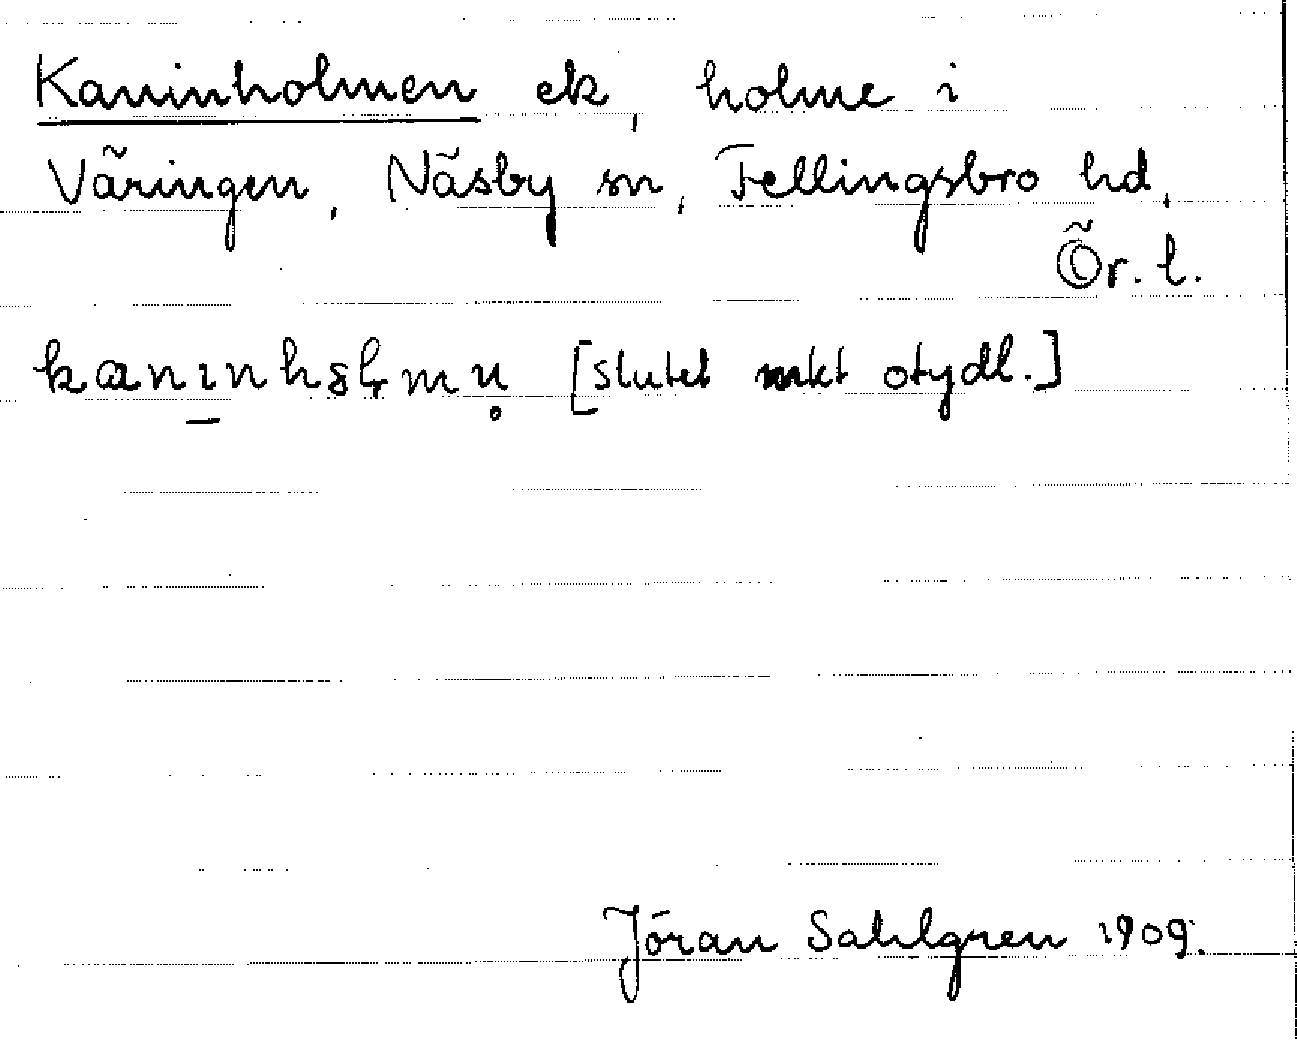 Kaninholmen ek, holme i
Väringen, Näsby sn, Fellingsbro hd,
Ör. l.
[slutet mkt otydl.]
Jöran Sahlgren 1909.